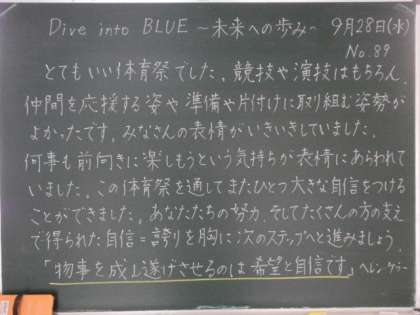 Dive into BLUE ～未来への歩み～ 9月28日(水)
No.89
とてもいい体育祭でした。競技や演技はもちろん、
仲間を応援する姿や準備や片付けに取り組む姿勢が
よかったです。みなさんの表情がいきいきしていました。
何事も前向きに楽しもうという気持ちが表情にあらわれて
いました。この体育祭を通してまたひとつ大きな自信をつける
ことができました。あなたたちの努力、そしてたくさんの方の支え
で得られた自信=誇りを胸に次のステップへと進みましょう。
「物事を成し遂げさせるのは希望と自信です」ヘレン・ケラー